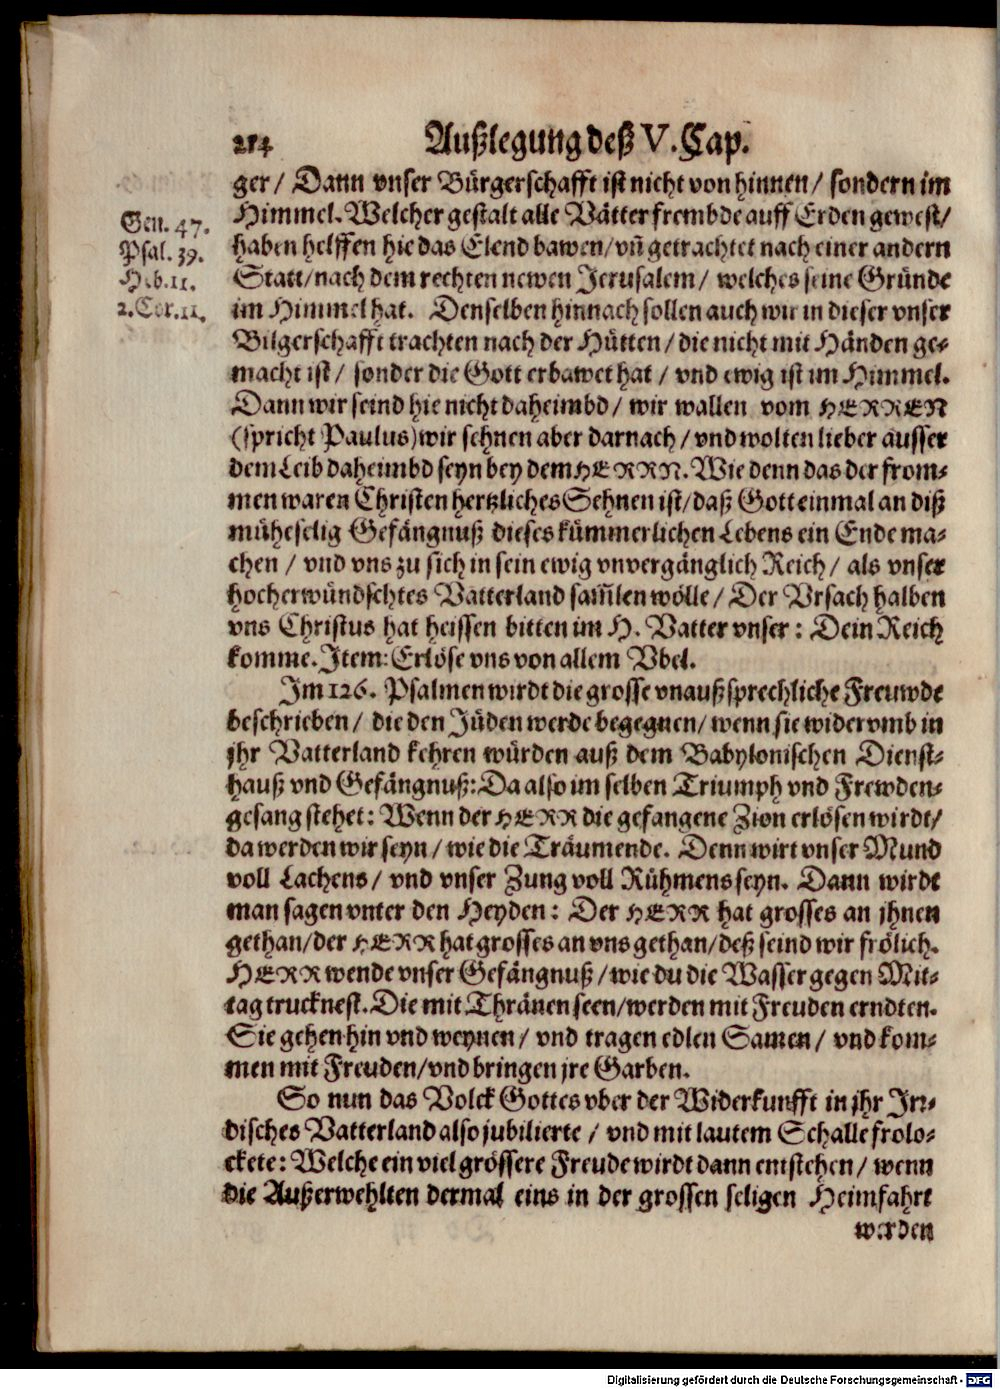 214 Außlegung deß V. Cap.
ger/ Dann vnser Bürgerschafft ist nicht von hinnen/ sondern im
Himmel. Welcher gestalt alle Vätter frembde auff Erden gewest/
haben helffen hie das Elend bawen/ vñ getrachtet nach einer andern
Statt/ nach dem rechten newen Jerusalem/ welches seine Gründe
im Himmel hat. Denselben hinnach sollen auch wir in dieser vnser
Bilgerschafft trachten nach der Hütten/ die nicht mit Händen ge-
macht ist/ sonder die Gott erbawet hat/ vnd ewig ist im Himmel.
Dann wir seind hie nicht daheimbd/ wir wallen vom HERREN
(spricht Paulus) wir sehnen aber darnach/ vnd wolten lieber ausser
dem Leib daheimbd seyn bey dem HERRN. Wie denn das der from-
men waren Christen hertzliches Sehnen ist/ daß Gott einmal an diß
müheselig Gefängnuß dieses kümmerlichen Lebens ein Ende ma-
chen/ vnd vns zu sich in sein ewig vnvergänglich Reich/ als vnser
hocherwündschtes Vatterland sam̃len wölle/ Der Vrsach halben
vns Christus hat heissen bitten im H. Vatter vnser: Dein Reich
komme. Item: Erlöse vns von allem Vbel.
Im 126. Psalmen wirdt die grosse vnaußsprechliche Freuwde
beschrieben/ die den Jüden werde begegnen/ wenn sie widervmb in
jhr Vatterland kehren würden auß dem Babylonischen Dienst-
hauß vnd Gefängnuß: Da also im selben Triumph vnd Frewden-
gesang stehet: Wenn der HERR die gefangene Zion erlösen wirdt/
da werden wir seyn/ wie die Träumende. Denn wirt vnser Mund
voll Lachens/ vnd vnser Zung voll Rühmens seyn. Dann wirdt
man sagen vnter den Heyden: Der HERR hat grosses an jhnen
gethan/ der HERR hat grosses an vns gethan/ deß seind wir frölich.
HERR wende vnser Gefängnuß/ wie du die Wasser gegen Mit-
tag trucknest. Die mit Thränen seen/ werden mit Freuden erndten.
Sie gehen hin vnd weynen/ vnd tragen edlen Samen/ vnd kom-
men mit Freuden/ vnd bringen jre Garben.
So nun das Volck Gottes vber der Widerkunfft in jhr Irr-
disches Vatterland also jubilierte/ vnd mit lautem Schalle frolo-
ckete: Welche ein viel grössere Freude wirdt dann entstehen/ wenn
die Außerwehlten dermal eins in der grossen seligen Heimfahrt
werden
Gen. 47.
Psal. 39.
Heb. 11.
2. Cor. 11.
Digitalisierung gefördert durch die Deutsche Forschungsgemeinschaft - DFG